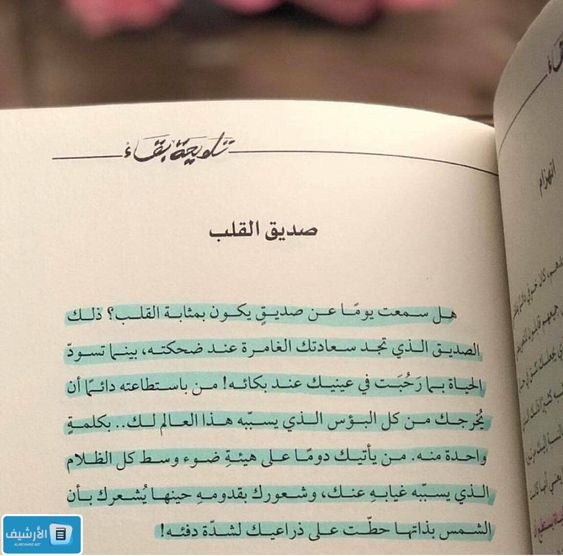 تلويحة بقاء
صديق القلب
هل سمعت يومًا عن صديقٍ يكون بمثابة القلب؟ ذلك
الصديق الذي تجد سعادتك الغامرة عند ضحكته، بينما تسودّ
الحياة بما رَحُبَت في عينيك عند بكائه! من باستطاعته دائمًا أن
يُخرجك من كل البؤس الذي يسبّبه هذا العالم لك.. بكلمةٍ
واحدة منه. من يأتيك دومًا على هيئةِ ضوء وسط كل الظلام
الذي يسبّبه غيابه عنك، وشعورك بقدومهِ حينها يُشعرك بأن
الشمس بذاتها حطّت على ذراعيك لشدّة دفئه!
انهزام
الأرشيف